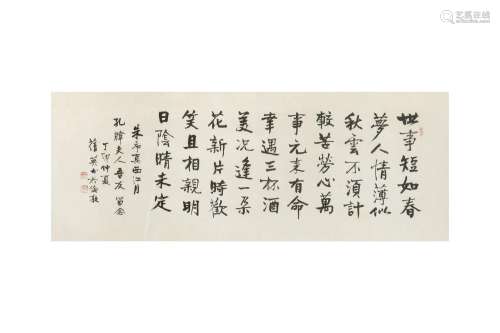 艺狐在线
世事短如春
夢人情薄似
秋雲不須計
較苦勞心萬
事元來有命
幸遇三杯酒
美況逢一朵
花新片時歡
笑且相親明
日陰晴未定
朱希真西江月
夫人 友 留念
丁卯仲夏